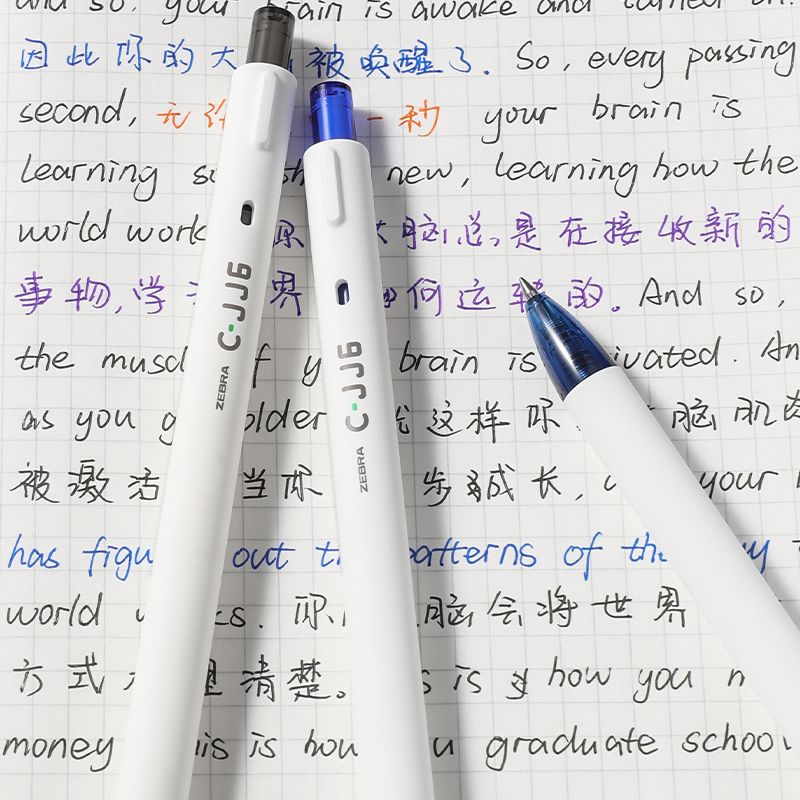 and so, your brain is awake and turned on.
因此你的大 被唤醒了. So, every passing
second, 无论 一秒 your brain is
learning so new, learning how the
world work 你 大脑总是在接收新的
事物, 学习 界 如何运转的. And so,
the musc of y brain is ivated. An
as you g older 就这样你 脑肌肉
被激活 当你 步成长, your
has figu out t patterns of the y
world w ks. 你 脑会将世界
方式 理清楚. s is how you m
money is is how u graduate school
ZEBRA C·JJ6
ZEBRA C·JJ6